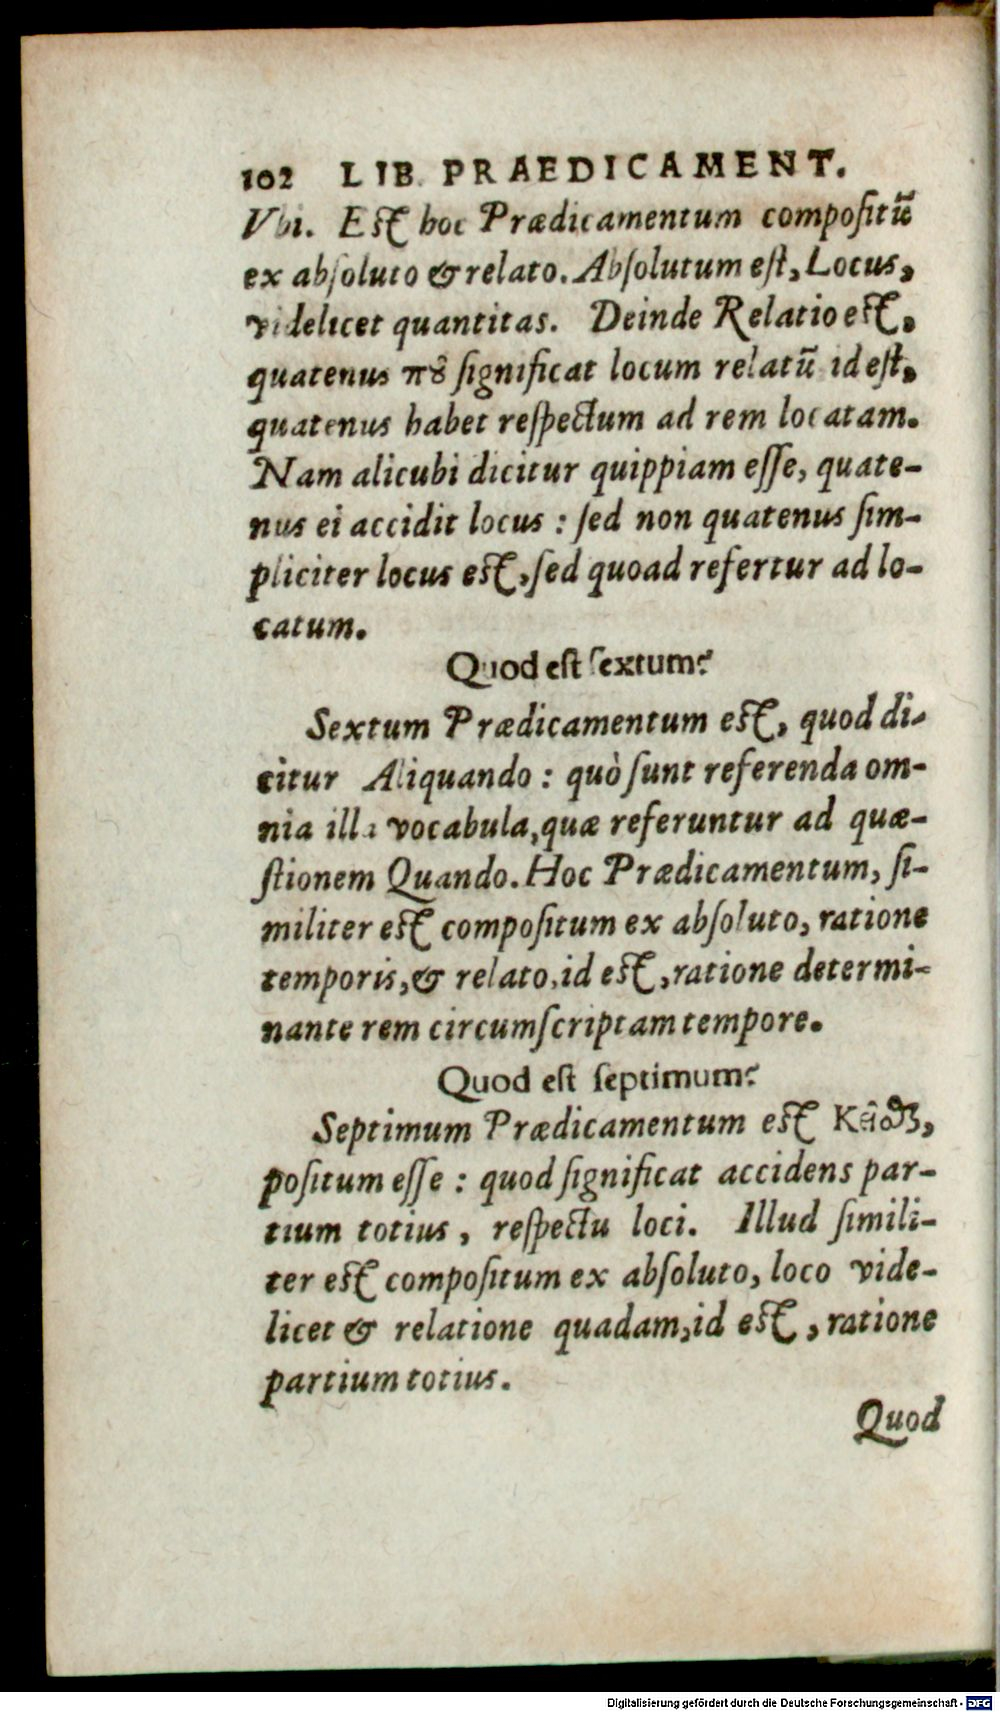 102 LIB. PRAEDICAMENT.
Vbi. Est hoc Prædicamentum compositũ
ex absoluto & relato. Absolutum est, Locus,
videlicet quantitas. Deinde Relatio est,
quatenus πȣ significat locum relatũ id est,
quatenus habet respectum ad rem locatam.
Nam alicubi dicitur quippiam esse, quate-
nus ei accidit locus : sed non quatenus sim-
pliciter locus est, sed quoad refertur ad lo-
catum.
Quod est sextum?
Sextum Prædicamentum est, quod di-
citur Aliquando : quò sunt referenda om-
nia illa vocabula, quæ referuntur ad quæ-
stionem Quando. Hoc Prædicamentum, si-
militer est compositum ex absoluto, ratione
temporis, & relato, id est, ratione determi-
nante rem circumscriptam tempore.
Quod est septimum?
Septimum Prædicamentum est Κεῖσθαι,
positum esse : quod significat accidens par-
tium totius, respectu loci. Illud simili-
ter est compositum ex absoluto, loco vide-
licet & relatione quadam, id est, ratione
partium totius.
Quod
Digitalisierung gefördert durch die Deutsche Forschungsgemeinschaft - DFG